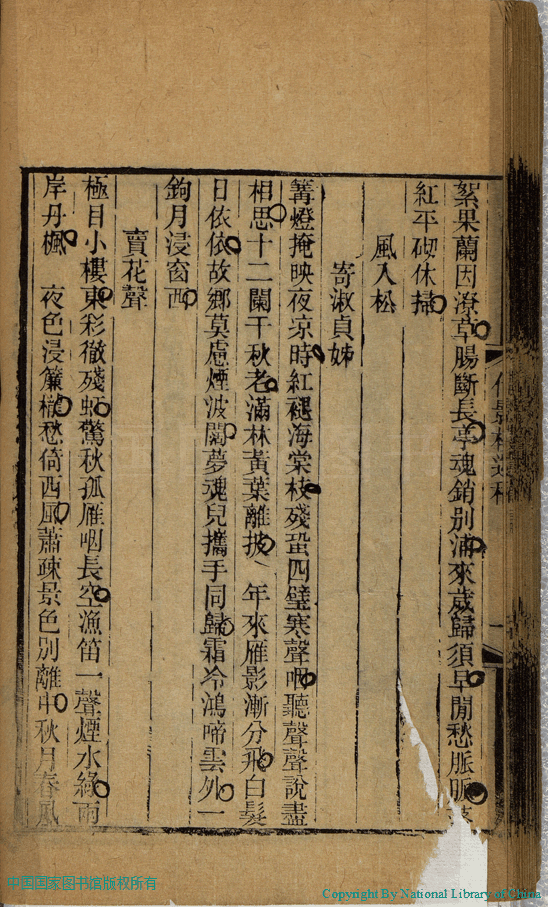 絮果蘭因潦草腸斷長亭魂銷別浦來歲歸須早閒愁脈脈落
紅平砌休掃
風入松
寄淑貞姊
篝燈掩映夜凉時紅褪海棠枝殘蛩四壁寒聲咽聽聲聲說盡
相思十二闌干秋老滿林黃葉離披 年來雁影漸分飛白髮
日依依故鄉莫慮煙波闊夢魂兒攜手同歸霜冷鴻啼雲外一
鉤月浸窗西
賣花聲
極目小樓東彩徹殘虹驚秋孤雁咽長空漁笛一聲煙水綠兩
岸丹楓 夜色浸簾櫳愁倚西風蕭疎景色別離中秋月春風
一
中国国家图书馆版权所有
Copyright By National Library of China